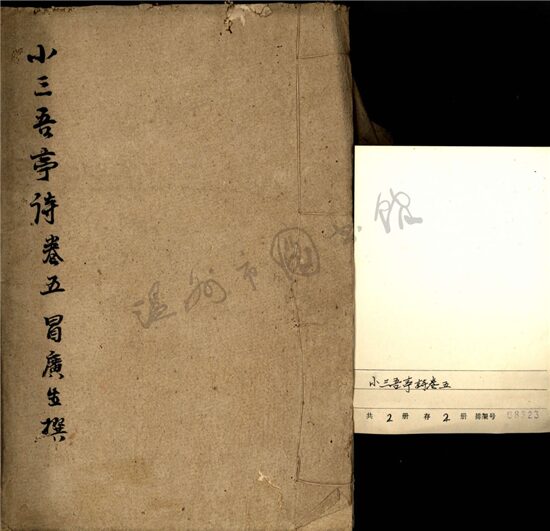 小三吾亭诗卷五 冒廣生撰
温州市图书馆
小三吾亭诗卷五
共 2 册 存 2 册 排架号